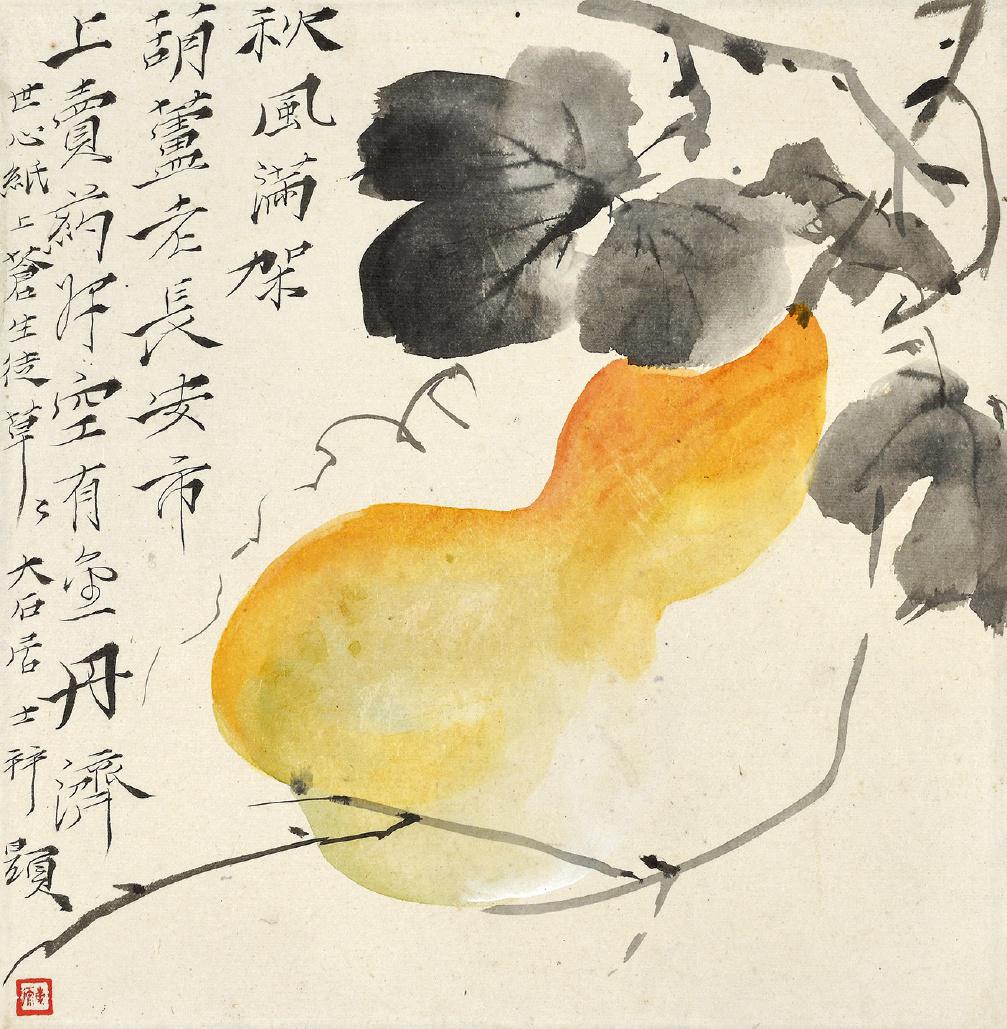 秋風滿架
葫蘆老長安市
上賣葯空有丹濟
世心紙上蒼生徒草々大石居士題